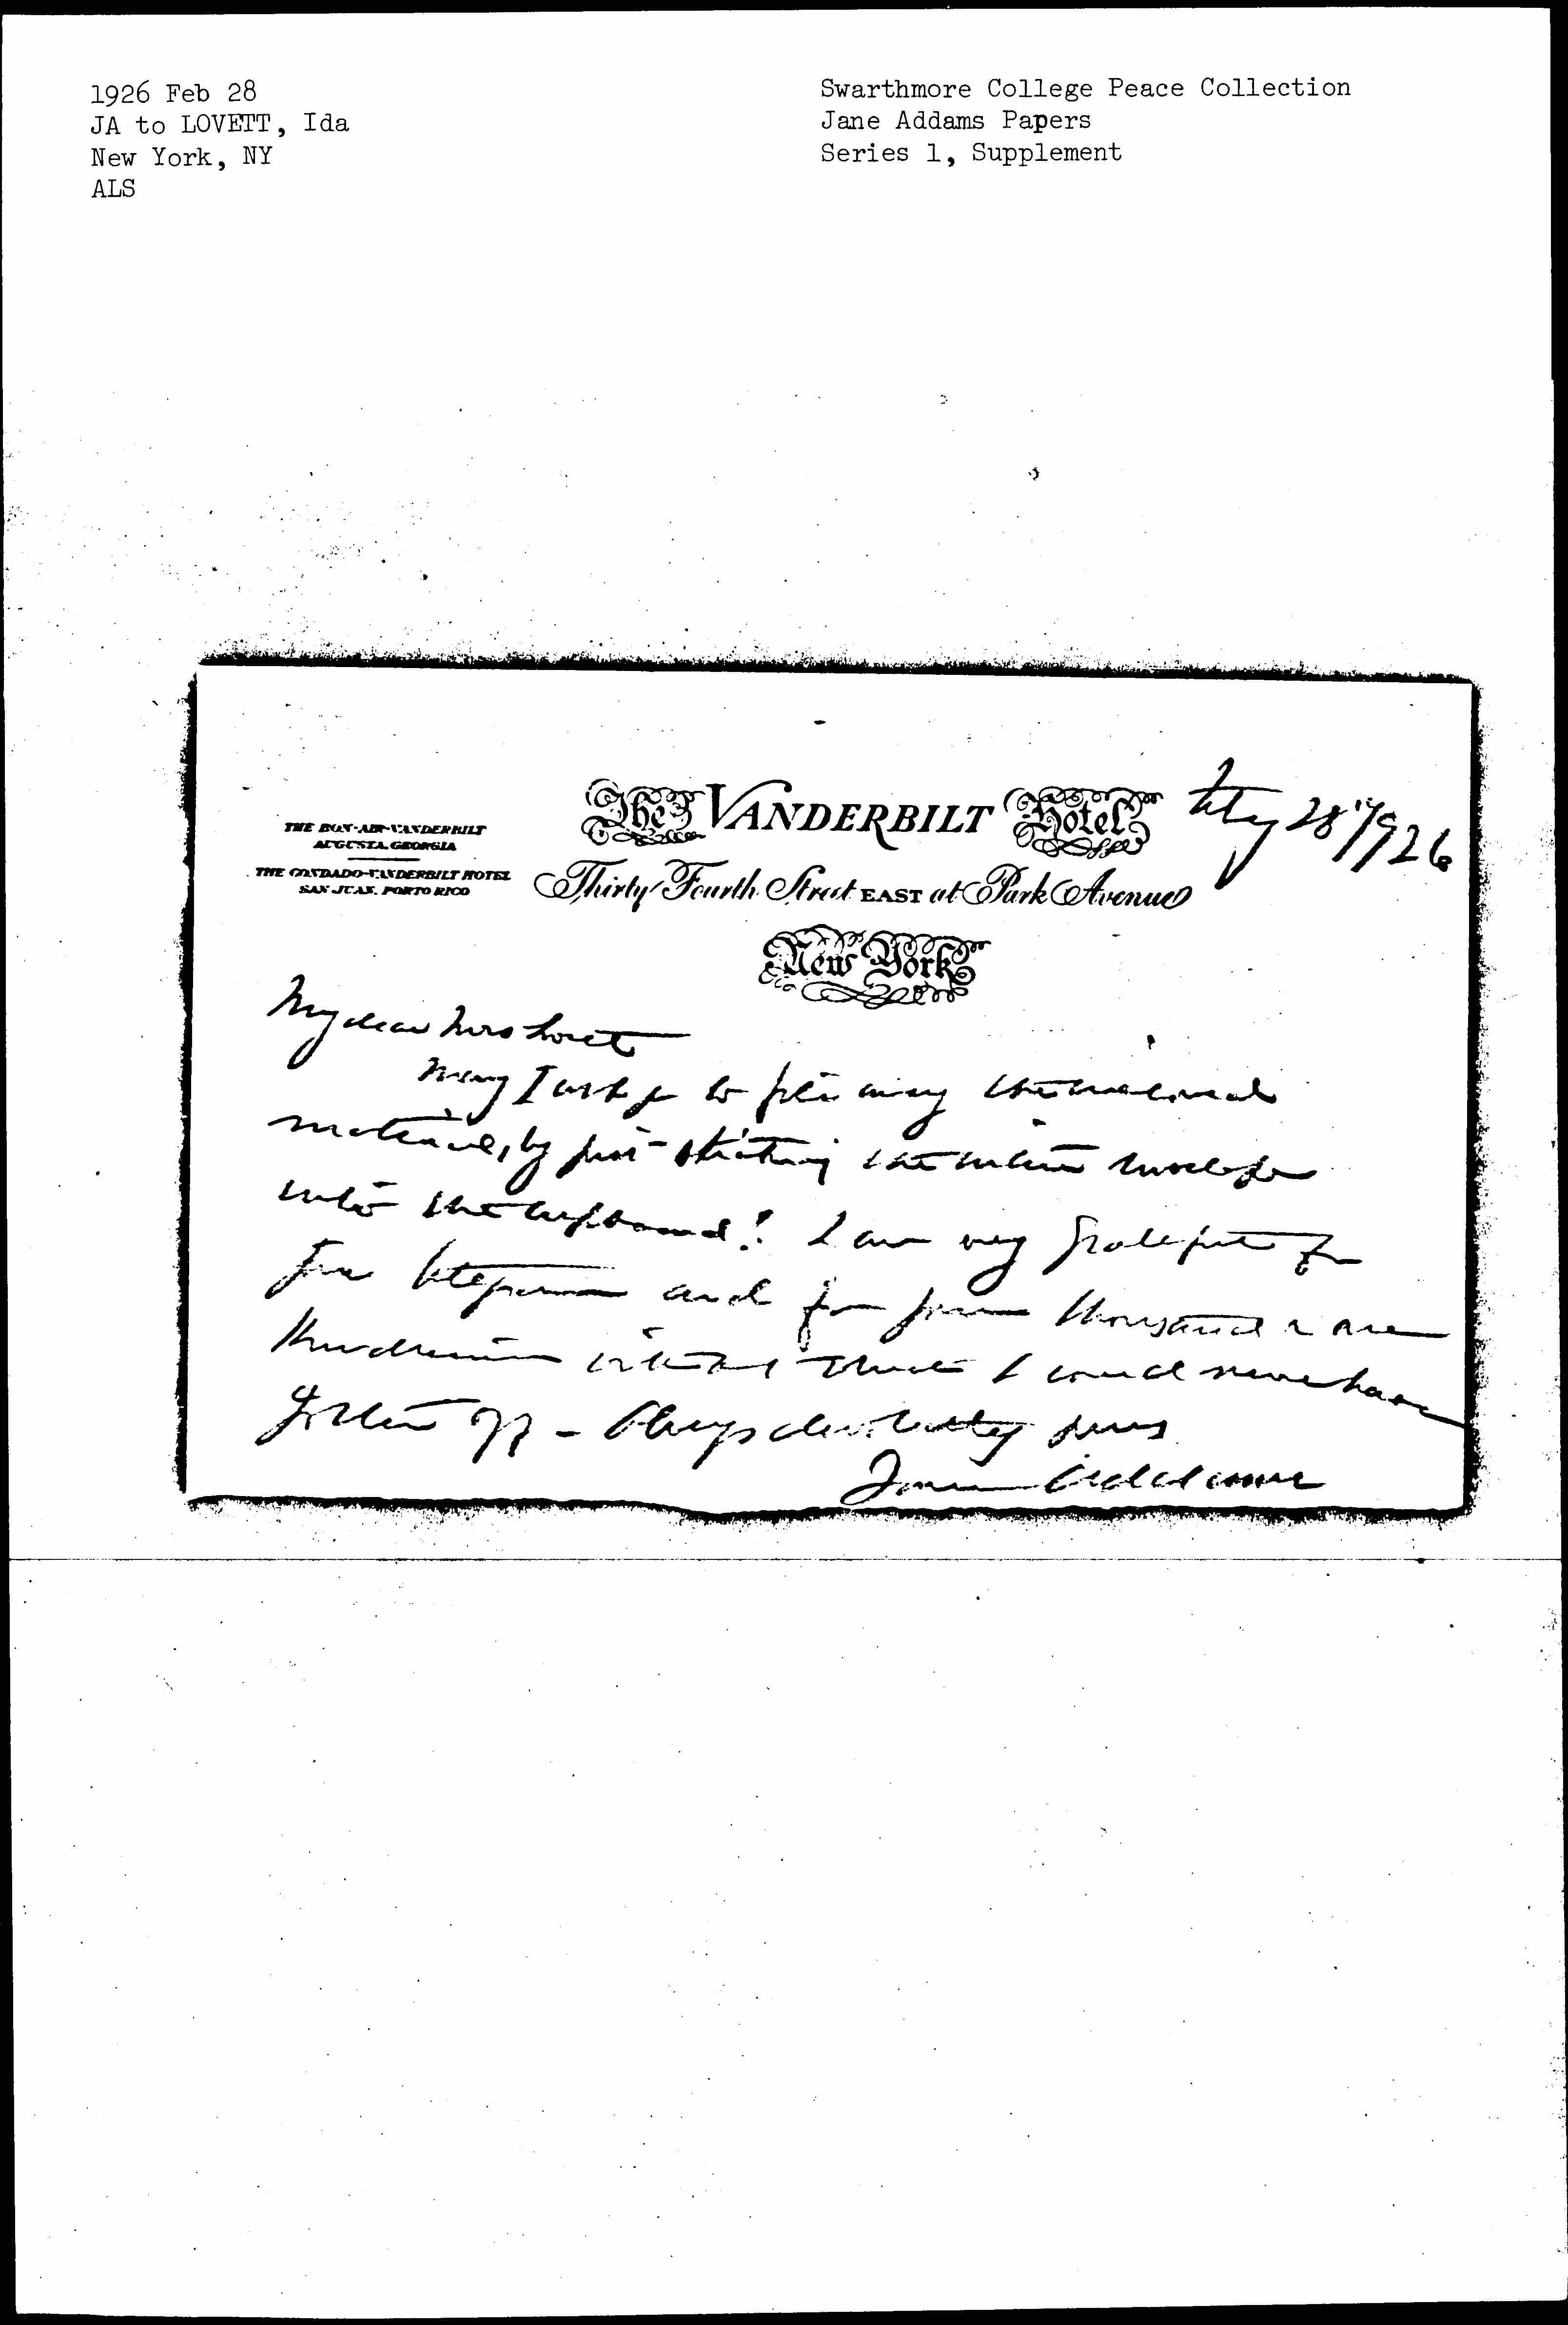 1926 Feb 28
JA to LOVETT, Ida
New York, NY
ALS
Swarthmore College Peace Collection
Jane Addams Papers
Series 1, Supplement
THE BON-AIR-VANDERBILT
AUGUSTA, GEORGIA
THE CONDADO-VANDERBILT HOTEL
SAN JUAN, PORTO RICO
The VANDERBILT Hotel
Thirty Fourth Street EAST at Park Avenue
New York
28" 1926
My dear Mrs Lovett
May I ask to file away
material, by just sticking the envelope
into the cupboard! I am very grateful for
and for your thousand & one
kindnesses without which I could never have
gotten off - Always devotedly yours
Jane Addams